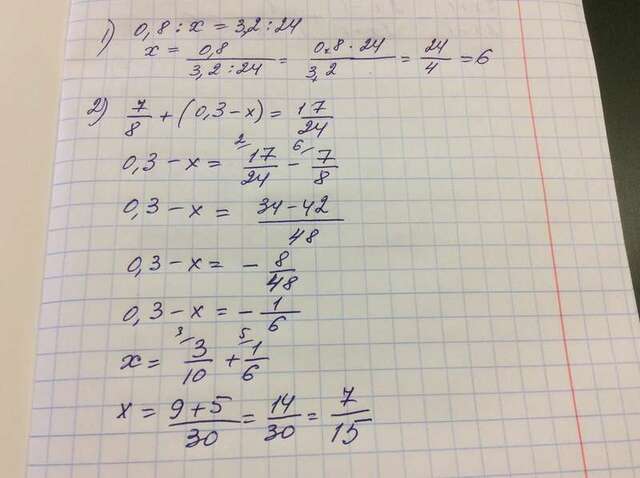 1) 0,8 : x = 3,2 : 24
x = 0,8/(3,2 : 24) = (0,8 · 24)/3,2 = 24/4 = 6
2) 7/8 + (0,3 - x) = 17/24
0,3 - x = 2/ 17/24 - 6/ 7/8
0,3 - x = (34 - 42)/48
0,3 - x = - 8/48
0,3 - x = - 1/6
x = 3/ 3/10 + 5/ 1/6
x = (9 + 5)/30 = 14/30 = 7/15